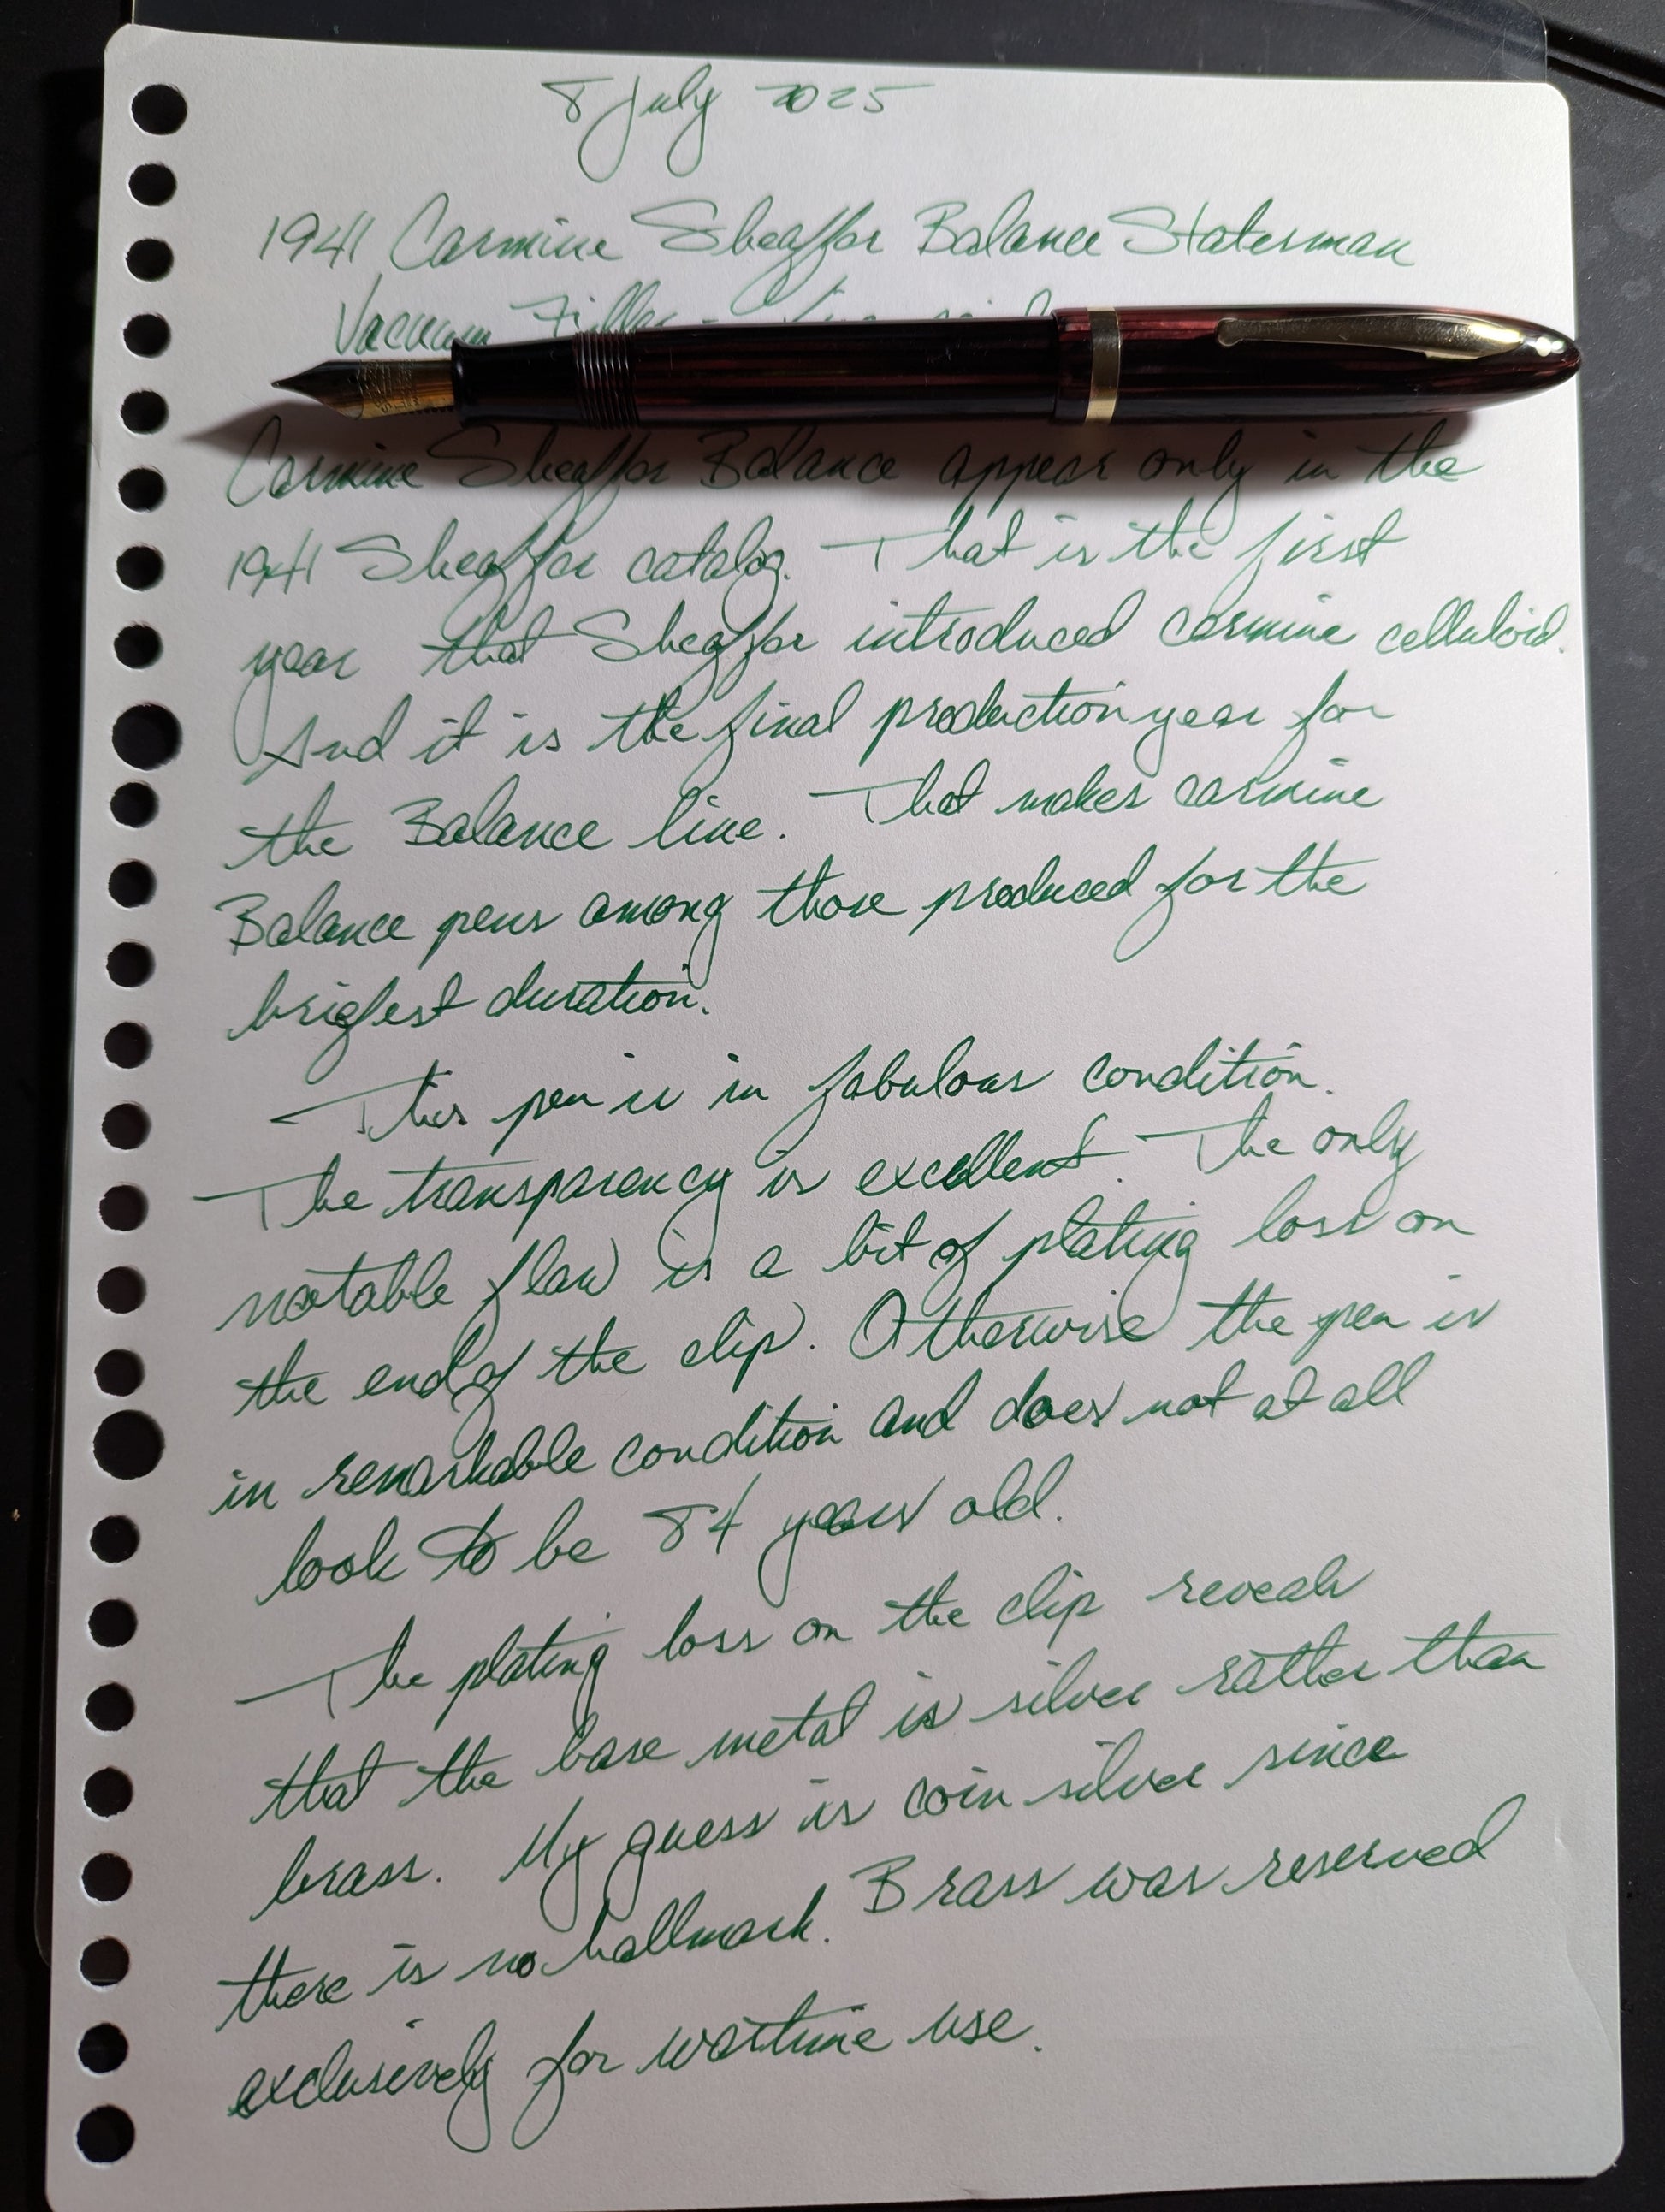 8 July 2025
1941 Carmine Sheaffer Balance Statesman
Vacuum Filler -
Carmine Sheaffer Balance appear only in the
1941 Sheaffer catalog. That is the first
year that Sheaffer introduced carmine celluloid.
And it is the final production year for
the Balance line. That makes carmine
Balance pens among those produced for the
briefest duration.
This pen is in fabulous condition.
The transparency is excellent. The only
notable flaw is a bit of plating loss on
the end of the clip. Otherwise the pen is
in remarkable condition and does not at all
look to be 84 years old.
The plating loss on the clip reveals
that the base metal is silver rather than
brass. My guess is coin silver since
there is no hallmark. Brass was reserved
exclusively for wartime use.